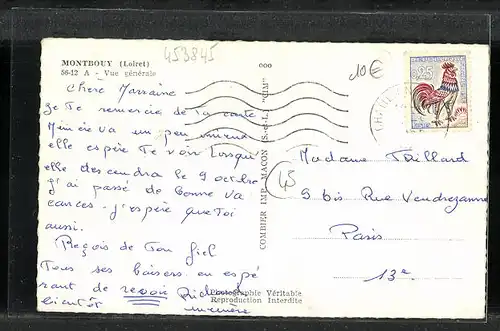 MONTBOUY (Loiret)
56-12 A - Vue générale
453845
000
10€
0,25
Chere Marraine
Je Te remercie de Ta carte
Mémère va un peu mieux
elle espère Te voir lorsque
elle descendra le 9 octobre
j'ai passé de bonne va
cances. j'espère que Toi
aussi.
Reçois de Ton fiel
Tous ses baisers en espé
rant de revoir
bientôt
COMBIER IMP. MACON (S.-et-L.) "CIM"
45
Madame Taillard
5 bis Rue Vendrezanne
Paris
13e
Photographie Véritable
Reproduction Interdite